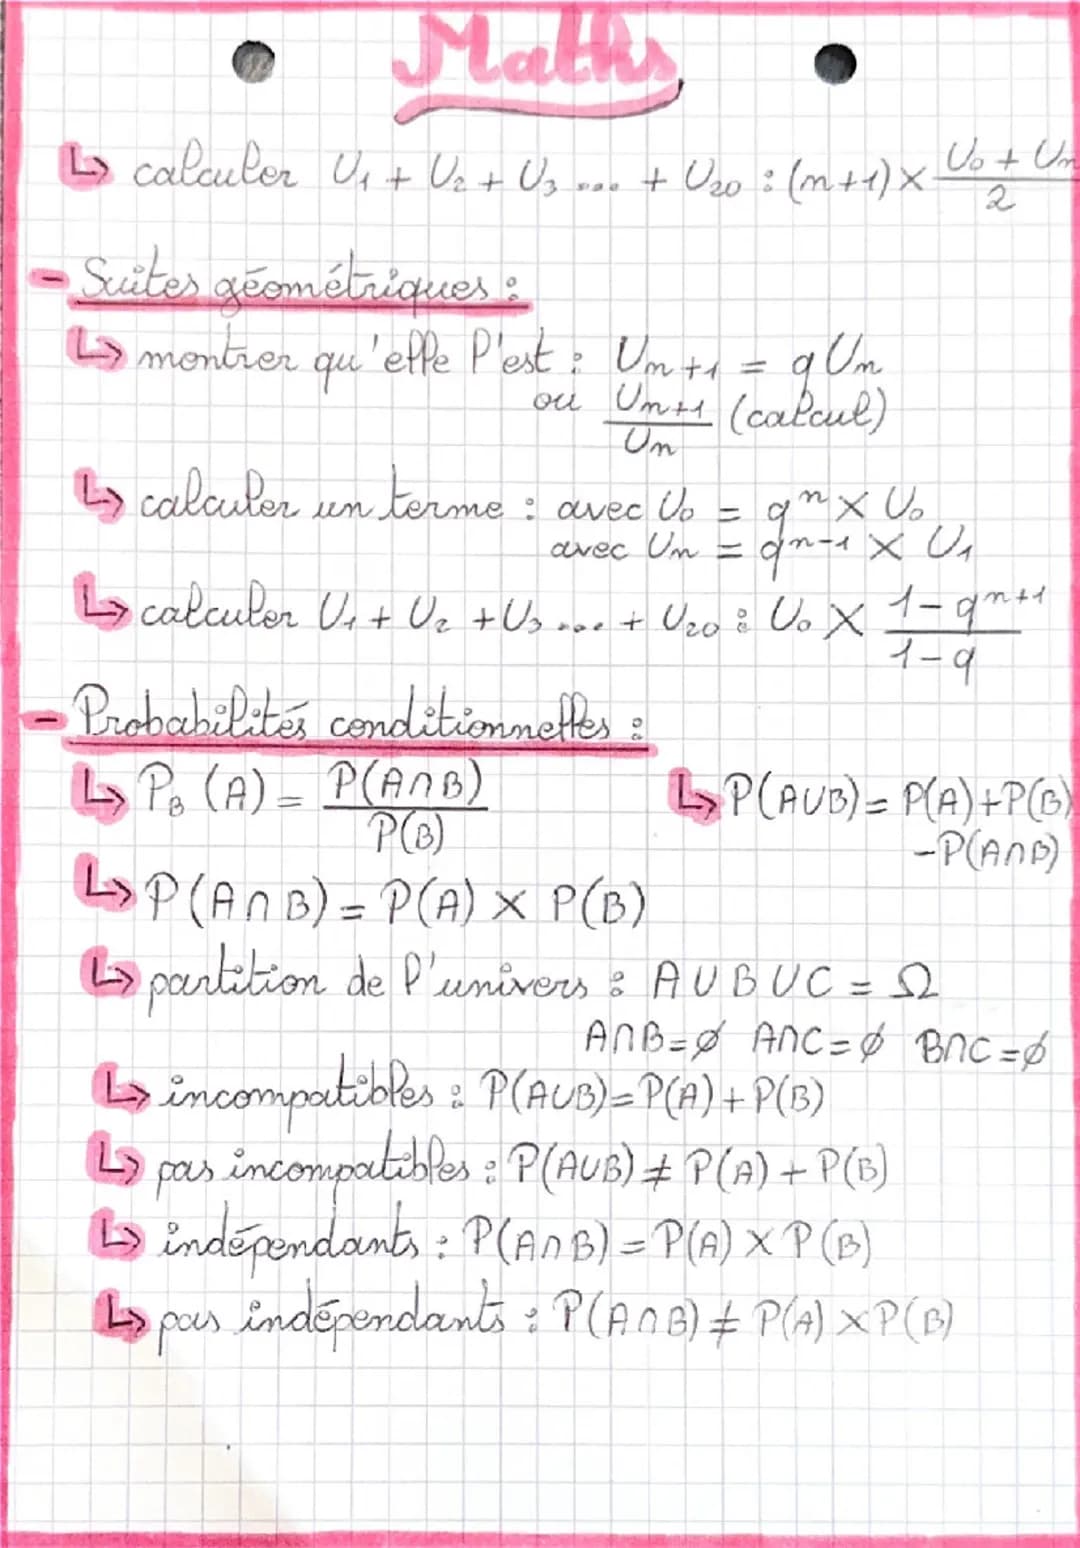 Maths
↳ calculer U₁ + U₂ + U₃ .... + U₂₀ : (n+1) × (U₀ + Uₙ)/2
- Suites géométriques :
↳ montrer qu'elle l'est : Uₙ₊₁ = qUₙ
ou Uₙ₊₁/Uₙ (calcul)
↳ calculer un terme : avec U₀ = qⁿ × U₀
avec Uₙ = qⁿ⁻¹ × U₁
↳ calculer U₁ + U₂ + U₃ .... + U₂₀ : U₀ × (1-qⁿ⁺¹)/(1-q)
- Probabilités conditionnelles :
↳ P_B (A) = P(A∩B)/P(B)
↳ P(A∪B) = P(A)+P(B)
-P(A∩B)
↳ P(A∩B) = P(A) × P(B)
↳ partition de l'univers : A∪B∪C = Ω
A∩B=∅ A∩C=∅ B∩C=∅
↳ incompatibles : P(A∪B)=P(A)+P(B)
↳ pas incompatibles : P(A∪B) ≠ P(A) + P(B)
↳ indépendants : P(A∩B) = P(A) × P(B)
↳ pas indépendants : P(A∩B) ≠ P(A) × P(B)